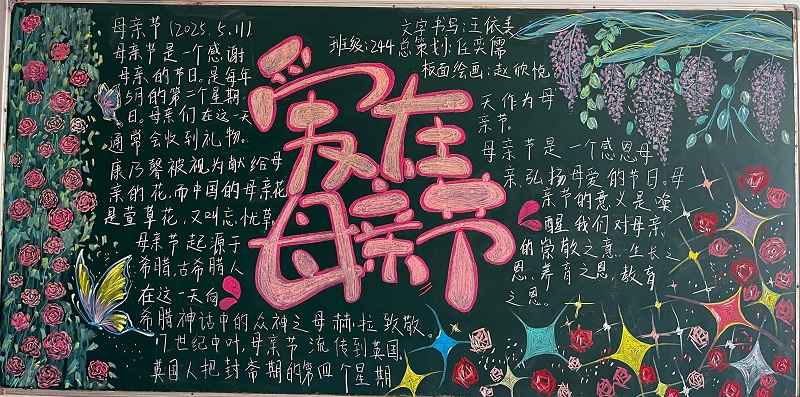 母亲节(2025.5.11)
母亲节是一个感谢
母亲的节日。是每年
5月的第二个星期
日。母亲们在这一天
通常会收到礼物。
康乃馨被视为献给母
亲的花,而中国的母亲花
是萱草花,又叫忘忧草。
母亲节起源于
希腊,古希腊人
在这一天向
希腊神话中的众神之母赫拉致敬。
17世纪中叶,母亲节流传到英国,
英国人把封斋期的第四个星期
爱在
母亲节
文字书写:王依美
班级:244 总策划:丘奕儒
板面绘画:赵欣悦
天作为母
亲节。
母亲节是一个感恩母
亲、弘扬母爱的节日。母
亲节的意义是唤
醒我们对母亲
的崇敬之意、生长之
恩、养育之恩、教育
之恩。